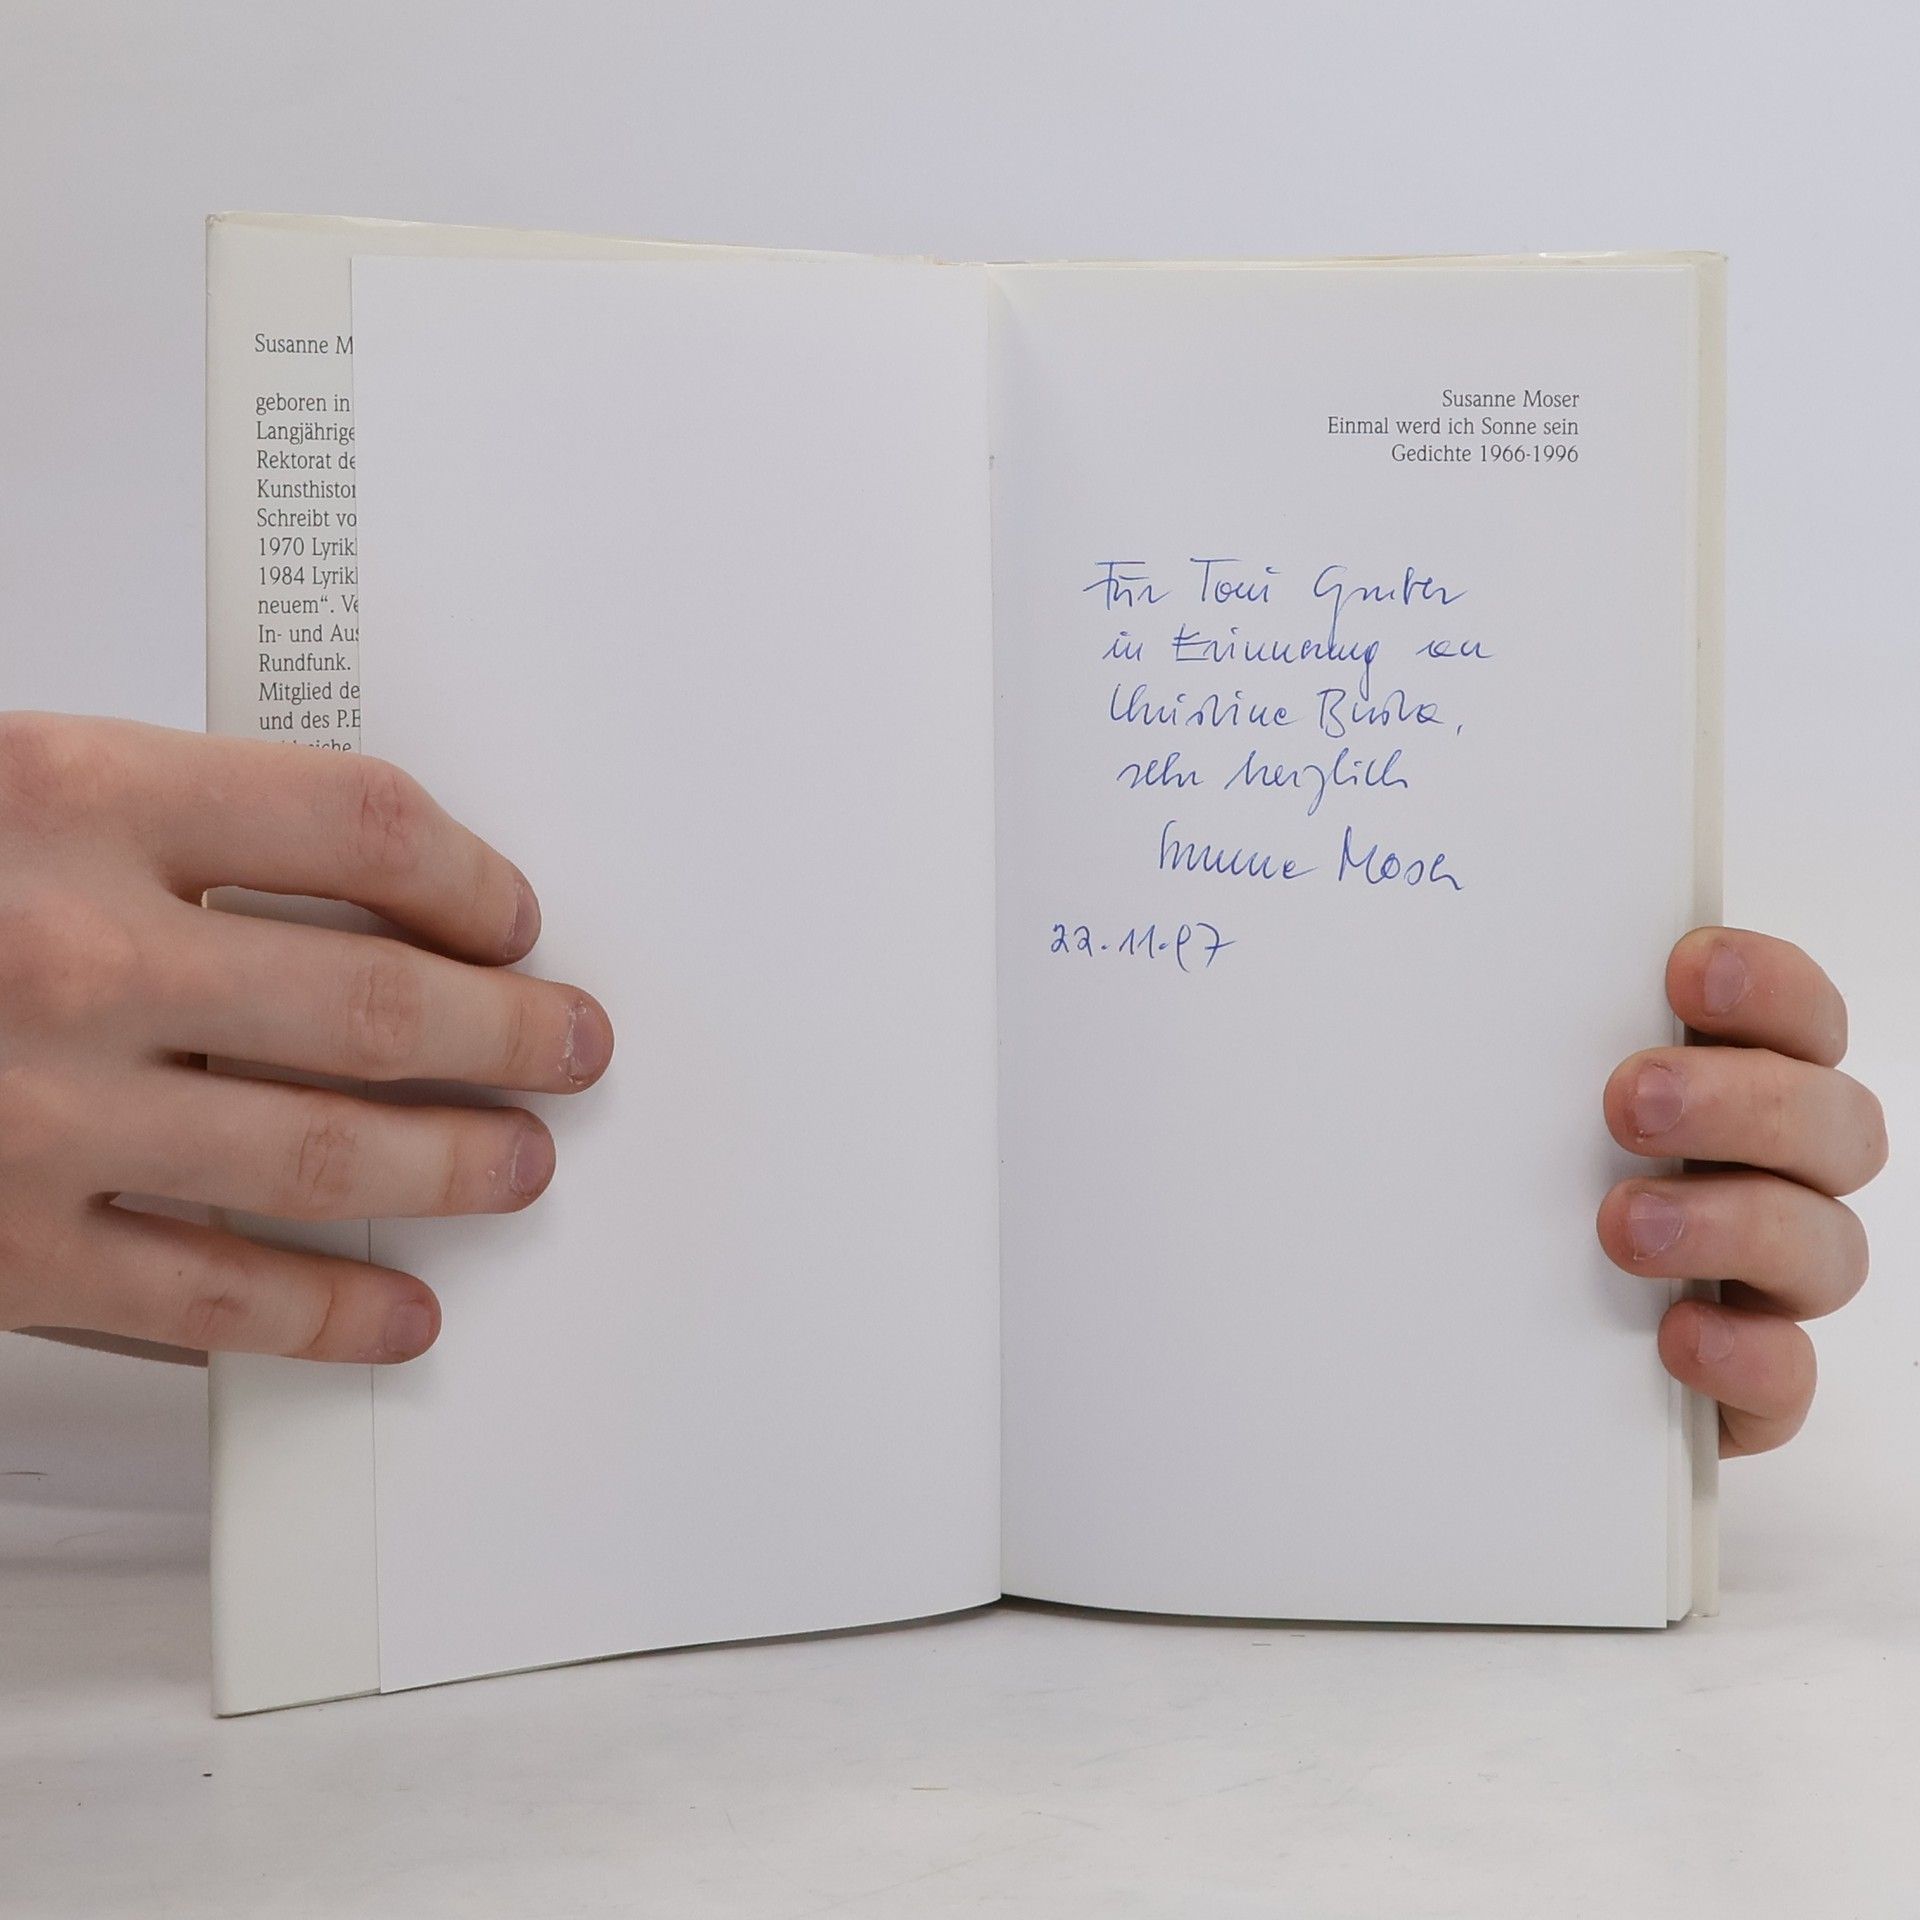 Susanne M
geboren in
Langjährige
Rektorat de
Kunsthistor
Schreibt vo
1970 Lyrik
1984 Lyrik
neuem“. Ve
In- und Aus
Rundfunk.
Mitglied de
und des P.E
iche
Susanne Moser
Einmal werd ich Sonne sein
Gedichte 1966-1996
Für Toni Gruber
in Erinnerung an
Christine Busta,
sehr herzlich
Susanne Moser
22.11.97